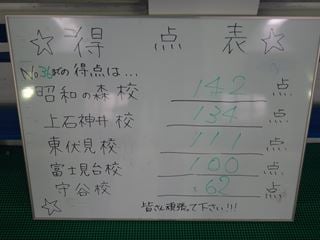 ☆得点表☆
No.36までの得点は...
昭和の森校 142点
上石神井校 134点
東伏見校 111点
富士見台校 100点
守谷校 62点
☆ 皆さん頑張って下さい!!!